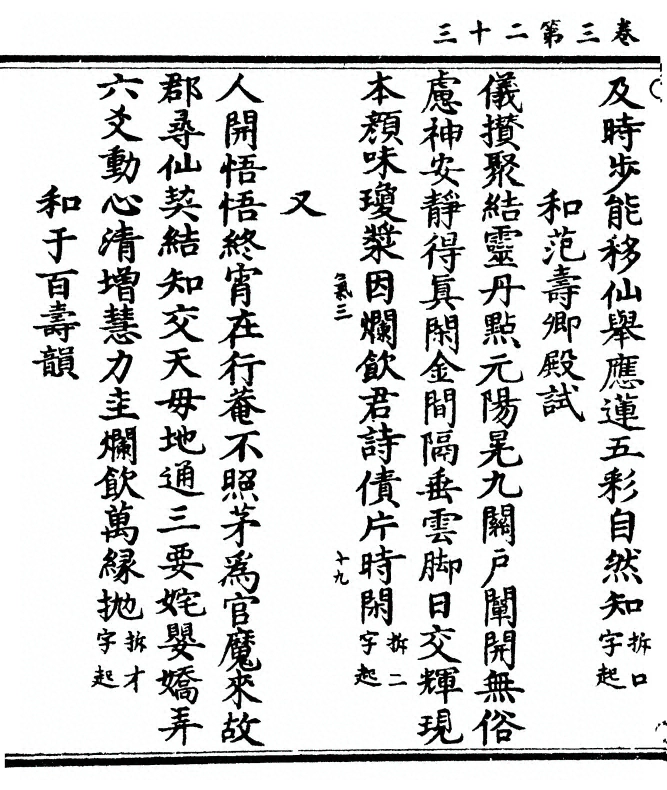 卷三第二十三
及時步能移仙舉應蓮五彩自然知拆口字起
和范壽卿殿試
儀攅聚結靈丹點元陽晃九關戶闡開無俗
慮神安靜得眞閑金間隔垂雲脚日交輝現
本顔味瓊漿因爛飲君詩債片時閑拆二字起
氣三
十九
又
人開悟悟終宵在行菴不照茅爲官魔來故
郡尋仙契結知交天毋地通三要姹嬰嬌弄
六爻動心清增慧力圭爛飲萬縁抛拆才字起
和于百壽韻